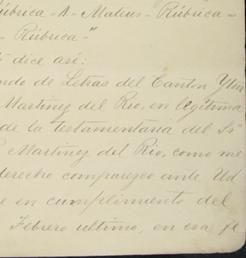 úbrica - A - Mateus - Rúbrica -
- Rúbrica."
dice así:
do de Letras del Canton
Martinez del Rio, en legítima
de la testamentaria del S.
Martinez del Rio, como me
derecho comparezco ante Ud
e en cumplimiento del
Febrero ultimo, en esa